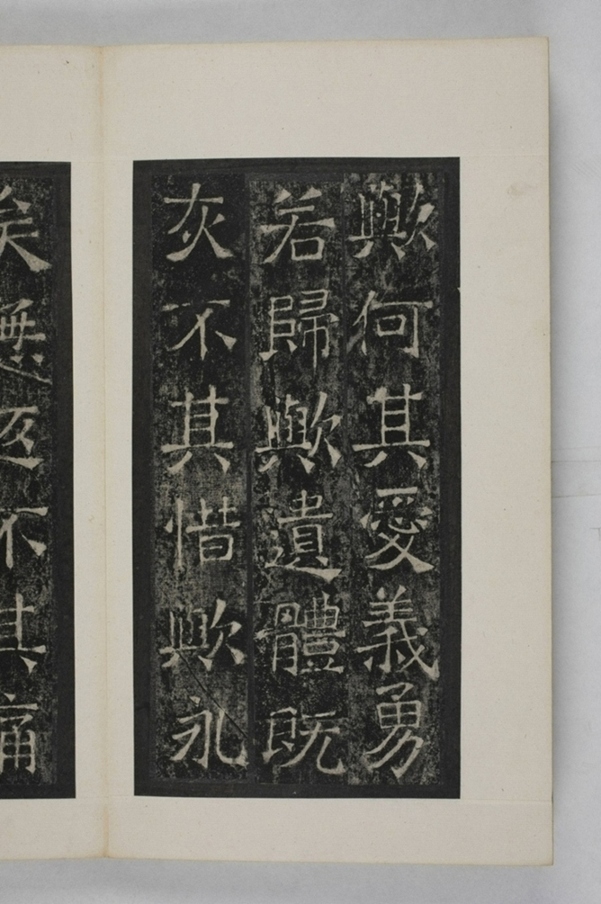 歟何其愛義勇
若歸歟遺體既
灰不其惜歟永
矣無返不其痛